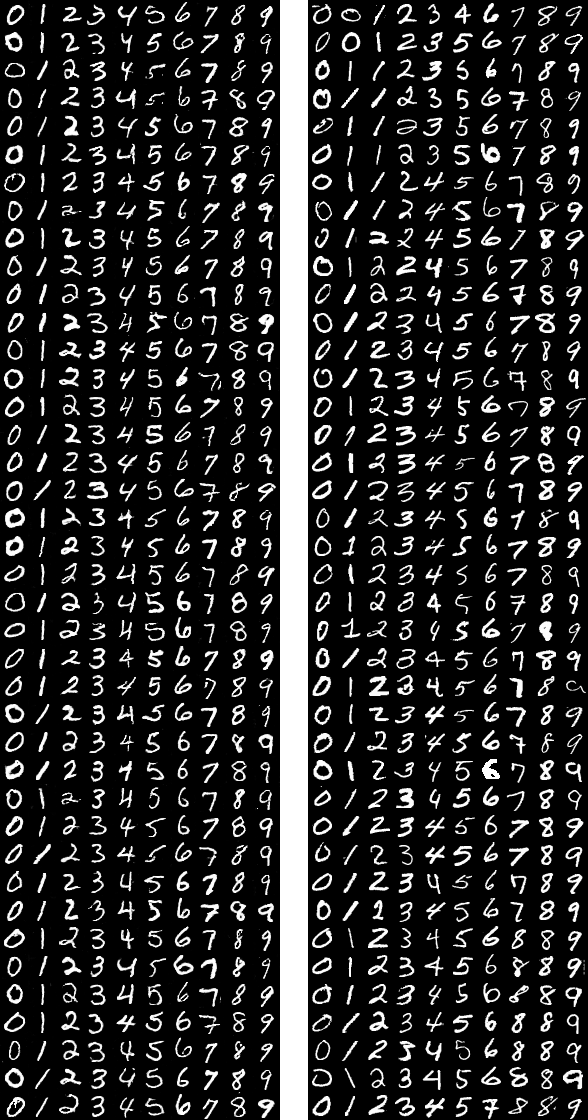 0 1 2 3 4 5 6 7 8 9
0 1 2 3 4 5 6 7 8 9
0 1 2 3 4 5 6 7 8 9
0 1 2 3 4 5 6 7 8 9
0 1 2 3 4 5 6 7 8 9
0 1 2 3 4 5 6 7 8 9
0 1 2 3 4 5 6 7 8 9
0 1 2 3 4 5 6 7 8 9
0 1 2 3 4 5 6 7 8 9
0 1 2 3 4 5 6 7 8 9
0 1 2 3 4 5 6 7 8 9
0 1 2 3 4 5 6 7 8 9
0 1 2 3 4 5 6 7 8 9
0 1 2 3 4 5 6 7 8 9
0 1 2 3 4 5 6 7 8 9
0 1 2 3 4 5 6 7 8 9
0 1 2 3 4 5 6 7 8 9
0 1 2 3 4 5 6 7 8 9
0 1 2 3 4 5 6 7 8 9
0 1 2 3 4 5 6 7 8 9
0 1 2 3 4 5 6 7 8 9
0 1 2 3 4 5 6 7 8 9
0 1 2 3 4 5 6 7 8 9
0 1 2 3 4 5 6 7 8 9
0 1 2 3 4 5 6 7 8 9
0 1 2 3 4 5 6 7 8 9
0 1 2 3 4 5 6 7 8 9
0 1 2 3 4 5 6 7 8 9
0 1 2 3 4 5 6 7 8 9
0 1 2 3 4 5 6 7 8 9
0 1 2 3 4 5 6 7 8 9
0 1 2 3 4 5 6 7 8 9
0 1 2 3 4 5 6 7 8 9
0 1 2 3 4 5 6 7 8 9
0 1 2 3 4 5 6 7 8 9
0 1 2 3 4 5 6 7 8 9
0 1 2 3 4 5 6 7 8 9
0 1 2 3 4 5 6 7 8 9
0 1 2 3 4 5 6 7 8 9
0 1 2 3 4 5 6 7 8 9
0 0 1 2 3 4 6 7 8 9
0 0 1 2 3 5 6 7 8 9
0 1 1 2 3 5 6 7 8 9
0 1 1 2 3 5 6 7 8 9
0 1 1 2 3 5 6 7 8 9
0 1 1 2 3 5 6 7 8 9
0 1 1 2 4 5 6 7 8 9
0 1 1 2 4 5 6 7 8 9
0 1 2 2 4 5 6 7 8 9
0 1 2 2 4 5 6 7 8 9
0 1 2 2 4 5 6 7 8 9
0 1 2 3 4 5 6 7 8 9
0 1 2 3 4 5 6 7 8 9
0 1 2 3 4 5 6 7 8 9
0 1 2 3 4 5 6 7 8 9
0 1 2 3 4 5 6 7 8 9
0 1 2 3 4 5 6 7 8 9
0 1 2 3 4 5 6 7 8 9
0 1 2 3 4 5 6 7 8 9
0 1 2 3 4 5 6 7 8 9
0 1 2 3 4 5 6 7 8 9
0 1 2 3 4 5 6 7 8 9
0 1 2 3 4 5 6 7 8 9
0 1 2 3 4 5 6 7 8 9
0 1 2 3 4 5 6 7 8 9
0 1 2 3 4 5 6 7 8 9
0 1 2 3 4 5 6 7 8 9
0 1 2 3 4 5 6 7 8 9
0 1 2 3 4 5 6 7 8 9
0 1 2 3 4 5 6 7 8 9
0 1 2 3 4 5 6 7 8 9
0 1 2 3 4 5 6 7 8 9
0 1 2 3 4 5 6 7 8 9
0 1 2 3 4 5 6 8 8 9
0 1 2 3 4 5 6 8 8 9
0 1 2 3 4 5 6 8 8 9
0 1 2 3 4 5 6 8 8 9
0 1 2 3 4 5 6 8 8 9
0 1 2 3 4 5 6 8 8 9
0 1 2 3 4 5 7 8 8 9